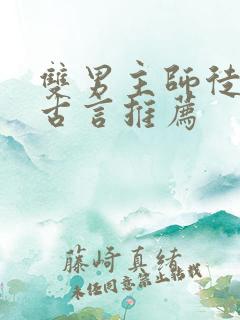 雙男主師徒
古言推薦
藤崎真緒
未經同意禁止轉載